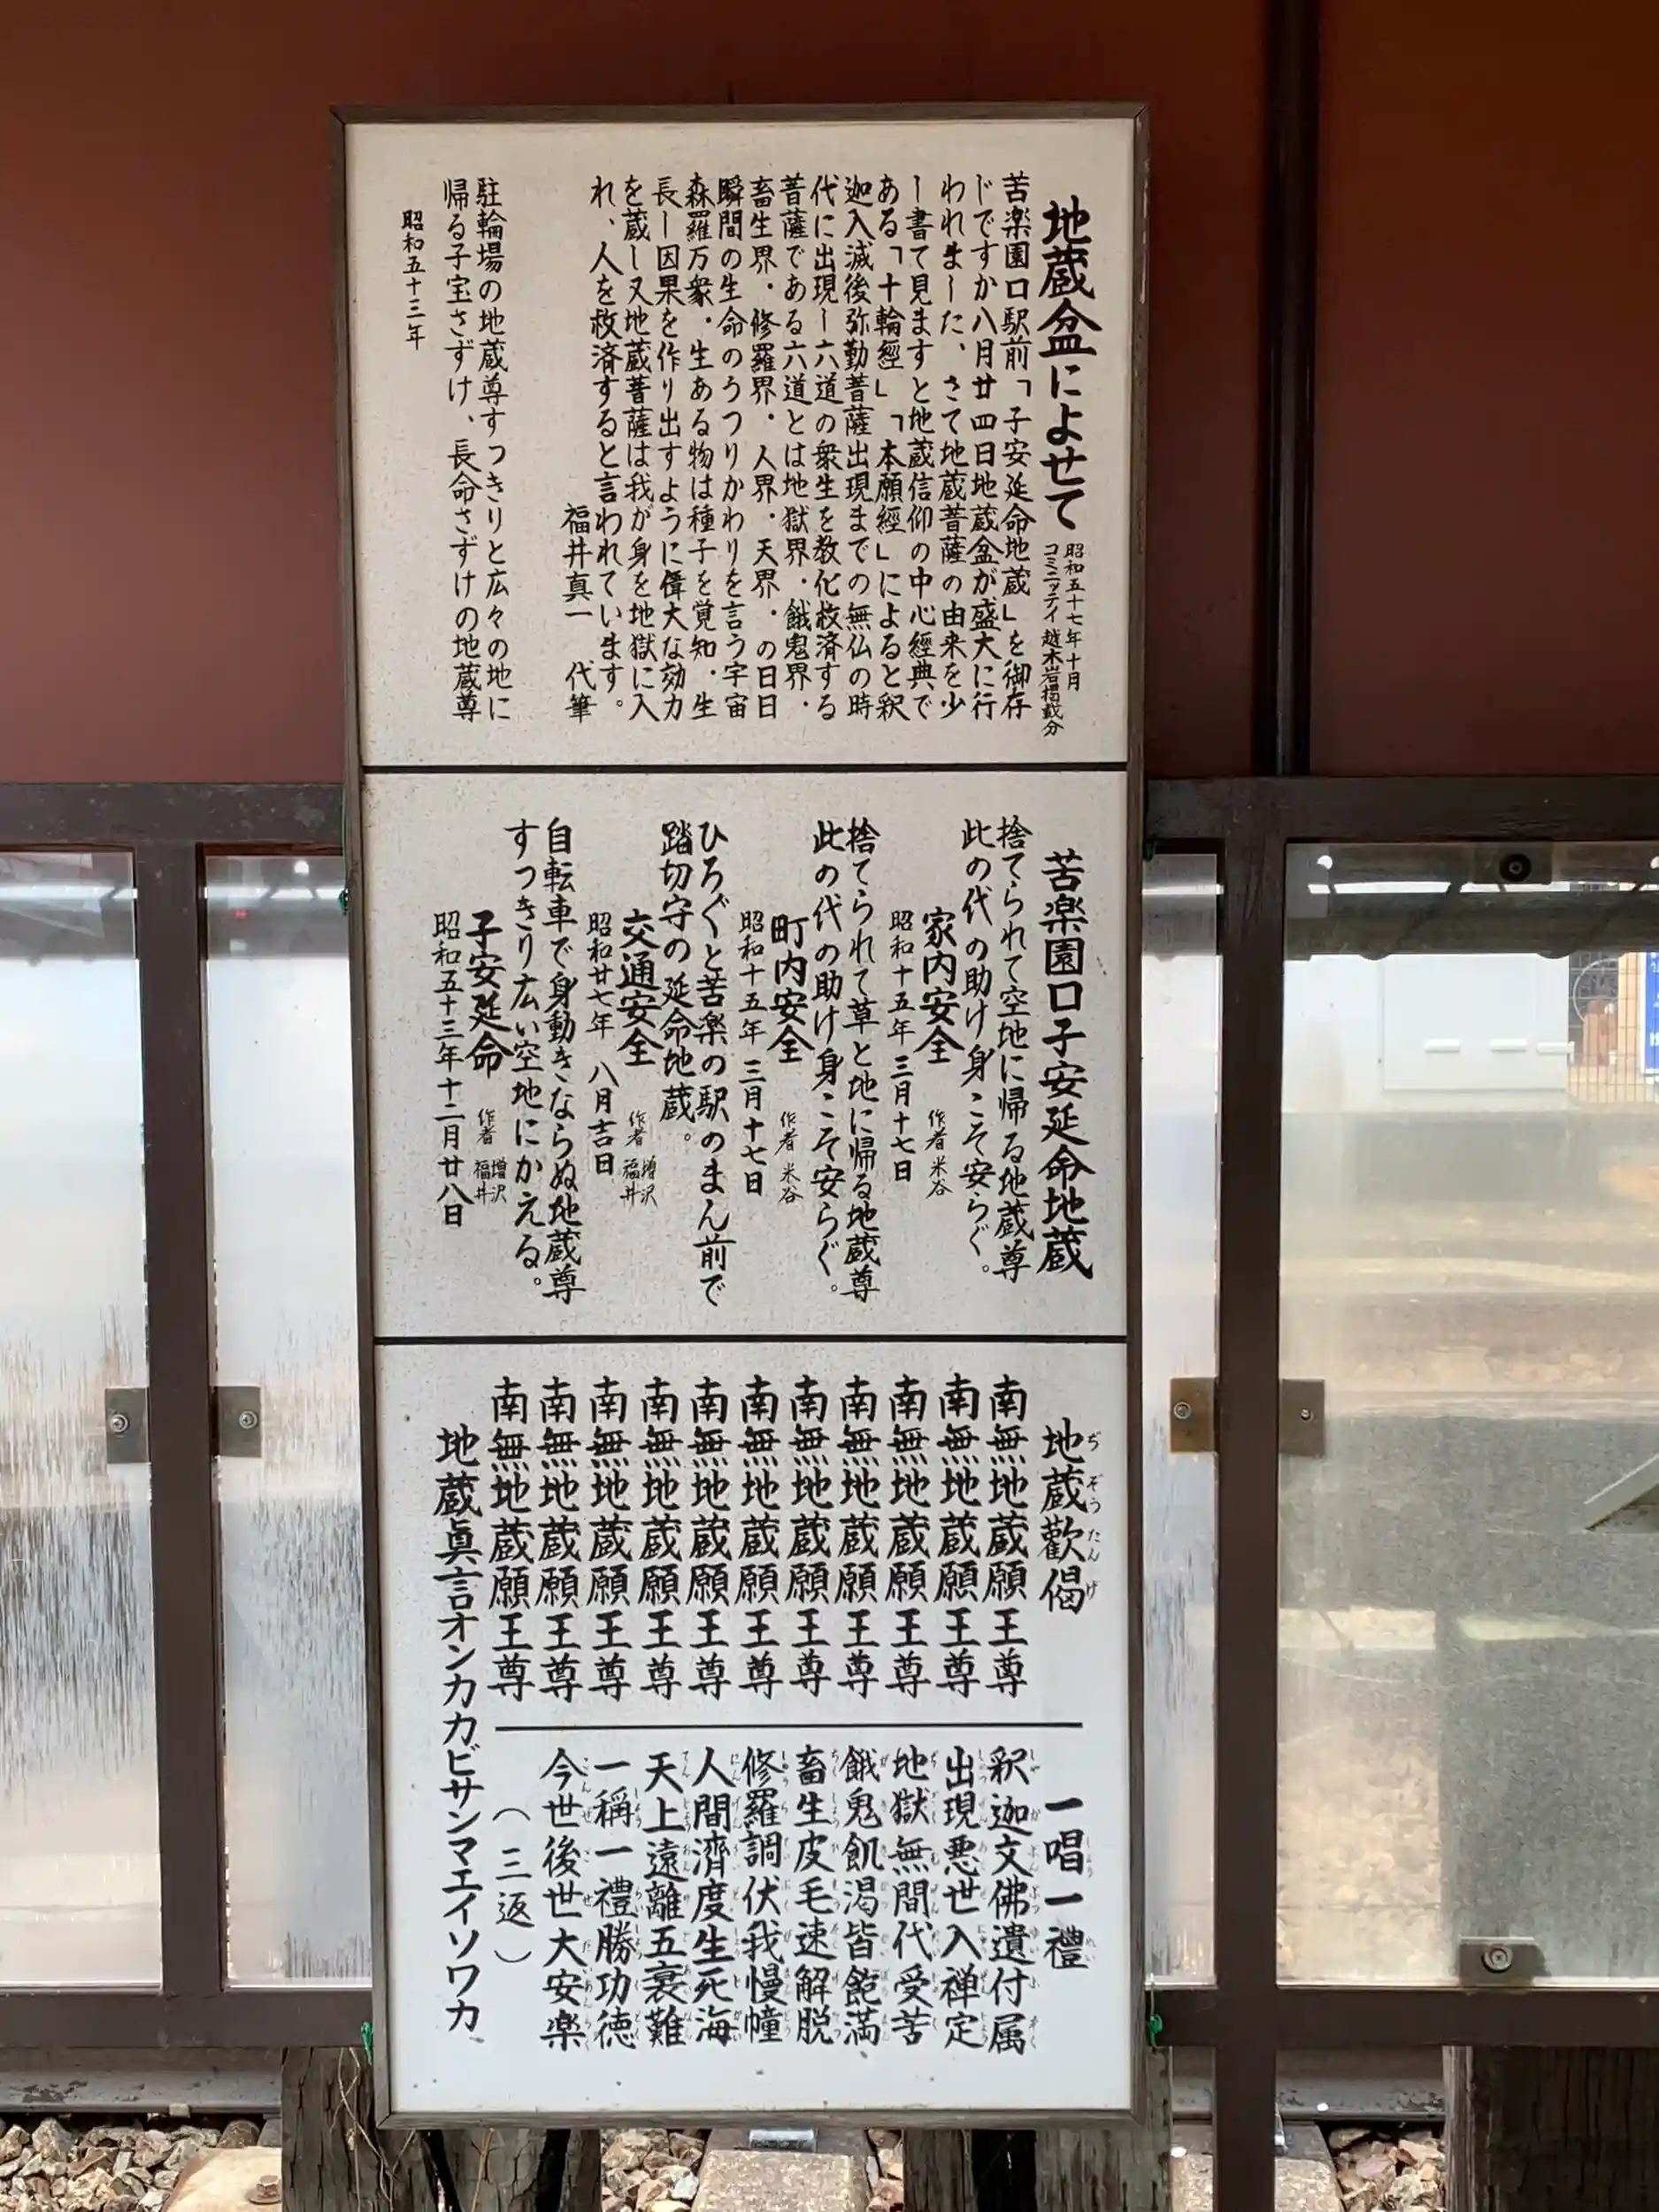 地蔵盆によせて
昭和五十七年十月
コミニッテイ越木岩掲載分
苦楽園口駅前「子安延命地蔵」を御存
じですか八月廿四日地蔵盆が盛大に行
われました、さて地蔵菩薩の由来を少
し書て見ますと地蔵信仰の中心經典で
ある「十輪經」「本願經」によると釈
迦入滅後弥勤菩薩出現までの無仏の時
代に出現し六道の衆生を教化救済する
菩薩である六道とは地獄界・餓鬼界・
畜生界・修羅界・人界・天界・の日日
瞬間の生命のうつりかわりを言う宇宙
森羅万衆・生ある物は種子を覚知・生
長し因果を作り出すように偉大な効力
を蔵し又地蔵菩薩は我が身を地獄に入
れ、人を救済すると言われています。
福井真一 代筆
駐輪場の地蔵尊すっきりと広々の地に
帰る子宝さずけ、長命さずけの地蔵尊
昭和五十三年
苦楽園口子安延命地蔵
捨てられて空地に帰る地蔵尊
此の代の助け身こそ安らぐ。
家内安全 作者 米谷
昭和十五年 三月十七日
捨てられて草と地に帰る地蔵尊
此の代の助け身こそ安らぐ。
町内安全 作者 米谷
昭和十五年 三月十七日
ひろぐと苦楽の駅のまん前で
踏切守の延命地蔵。
交通安全 作者 増沢 福井
昭和廿七年 八月吉日
自転車で身動きならぬ地蔵尊
すっきり広い空地にかえる。
子安延命 作者 増沢 福井
昭和五十三年十二月廿八日
地蔵歎偈
ぢぞうたんげ
南無地蔵願王尊
南無地蔵願王尊
南無地蔵願王尊
南無地蔵願王尊
南無地蔵願王尊
南無地蔵願王尊
南無地蔵願王尊
南無地蔵願王尊
南無地蔵願王尊
南無地蔵願王尊
南無地蔵願王尊
一唱一禮
釈迦文佛遺付属
出現悪世入禅定
地獄無間代受苦
餓鬼飢渇皆飽満
畜生皮毛速解脱
修羅調伏我慢幢
人間濟度生死海
天上遠離五衰難
一稱一禮勝功德
今世後世大安楽
（三返）
地蔵眞言オンカカビサンマエイソワカ